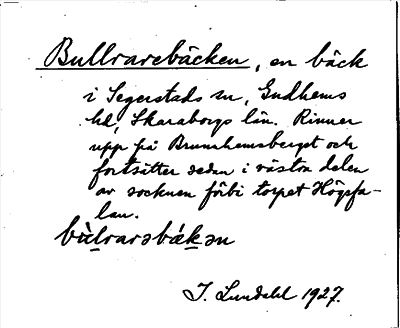 Bullrarebäcken, en bäck
i Segerstads sn, Gudhems
hd, Skaraborgs län. Rinner
upp på Brunnhemsberget och
fortsätter sedan i västra delen
av socknen förbi torpet Högsfa-
lan.
J. Lundahl 1927.